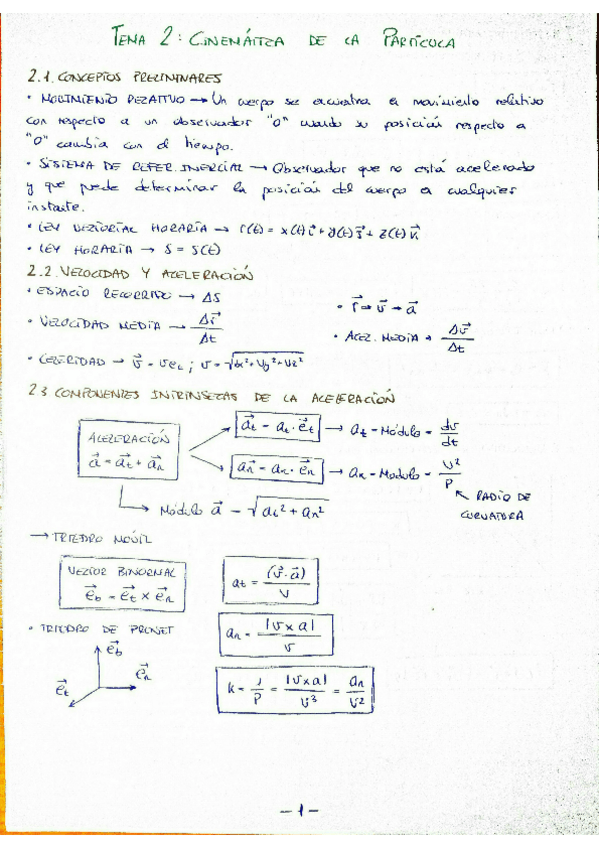 TEMA 2: CINEMÁTICA DE LA PARTÍCULA
2.1. CONCEPTOS PRELIMINARES
• MOVIMIENTO RELATIVO → Un cuerpo se encuentra en movimiento relativo
con respecto a un observador "O" cuando su posición respecto a
"O" cambia con el tiempo.
• SISTEMA DE REFER. INERCIAL → Observador que no está acelerado
y que puede determinar la posición del cuerpo en cualquier
instante.
• LEY VECTORIAL HORARIA → r(t) = x(t) i⃗ + y(t) j⃗ + z(t) k⃗
• LEY HORARIA → S = S(t)
2.2. VELOCIDAD Y ACELERACIÓN
• ESPACIO RECORRIDO → ΔS
• r⃗ → v⃗ → a⃗
• VELOCIDAD MEDIA → Δr⃗ / Δt
• ACEL. MEDIA → Δv⃗ / Δt
• CELERIDAD → v⃗ = v e⃗t ; v = √(vx² + vy² + vz²)
2.3 COMPONENTES INTRÍNSECAS DE LA ACELERACIÓN
ACELERACIÓN
a⃗ = a⃗t + a⃗n
a⃗t = at · e⃗t → at = Módulo = dv / dt
a⃗n = an · e⃗n → an = Módulo = v² / ρ
RADIO DE
CURVATURA
Módulo a⃗ = √(at² + an²)
→ TRIEDRO MÓVIL
VECTOR BINORMAL
e⃗b = e⃗t × e⃗n
at = (v⃗ · a⃗) / v
• TRIEDRO DE FRENET
an = |v x a| / v
e⃗b
e⃗n
e⃗t
k = 1 / ρ = |v x a| / v³ = an / v²
– 1 –